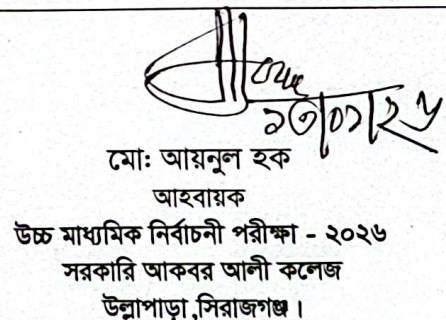 ১৩/০১/২৬
মো: আয়নুল হক
আহবায়ক
উচ্চ মাধ্যমিক নির্বাচনী পরীক্ষা - ২০২৬
সরকারি আকবর আলী কলেজ
উল্লাপাড়া,সিরাজগঞ্জ।